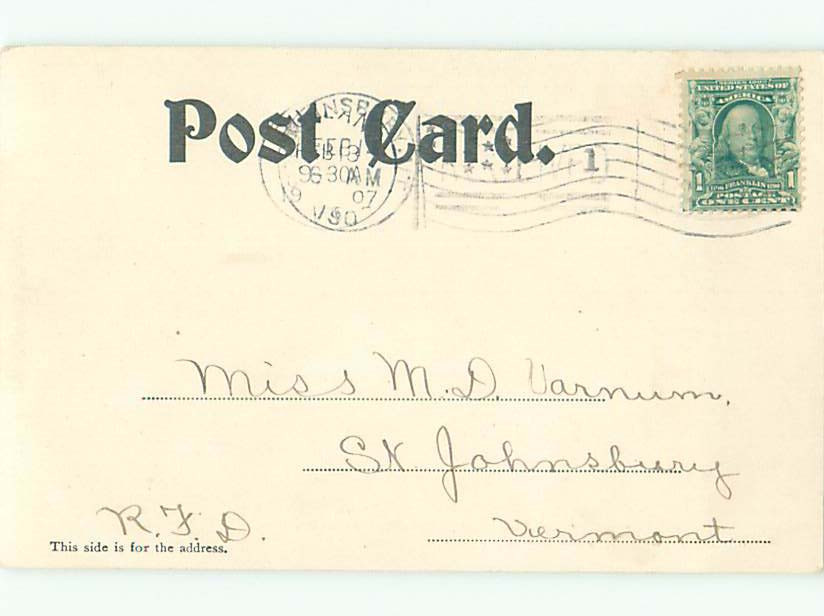 Post Card.
SERIES 1902
UNITED STATES OF
AMERICA
1 FRANKLIN 1
POSTAGE
ONE CENT
FEB 13
9 30 AM
07
1
Miss M. D. Varnum,
St. Johnsbury
R. F. D.
Vermont
This side is for the address.